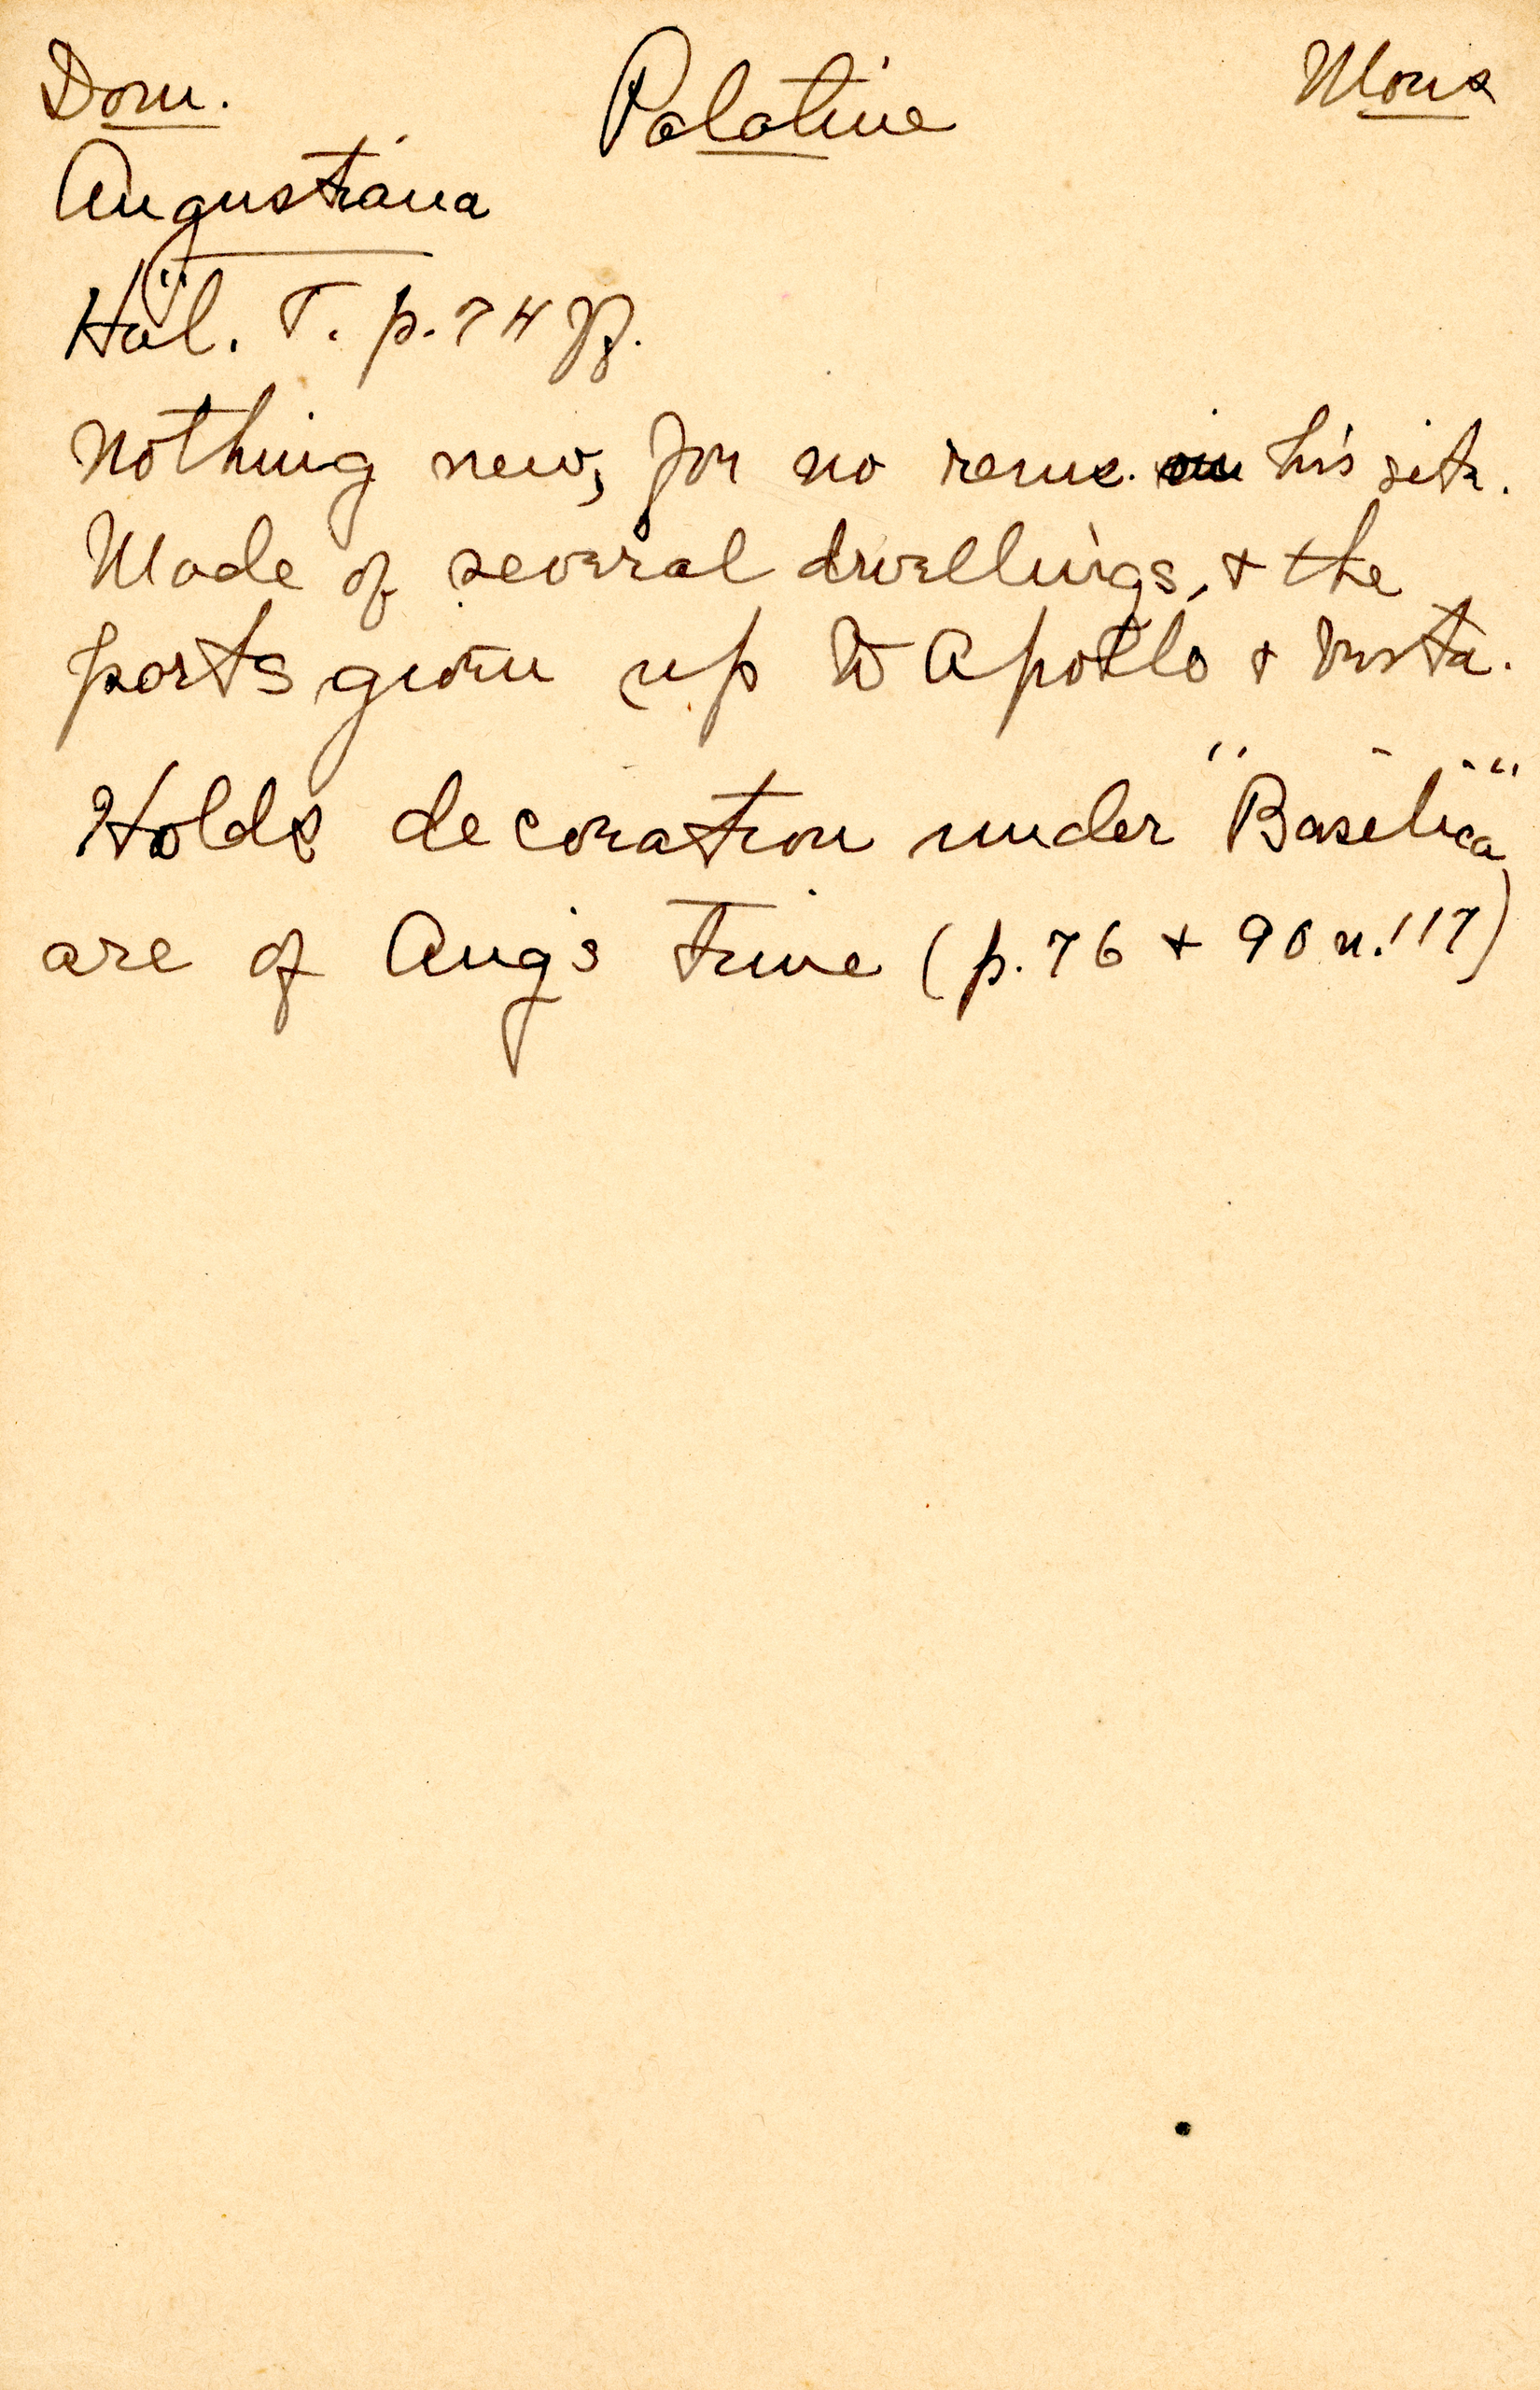 Dom. Palatine Mons
Augustiana
Hül. T. p. 74 ff.
Nothing new, for no rems. in his site.
Made of several dwellings, & the
parts given up to Apollo & Vesta.
Holds decoration under "Basilica"
are of Aug's time (p. 76 & 90 n. 117)